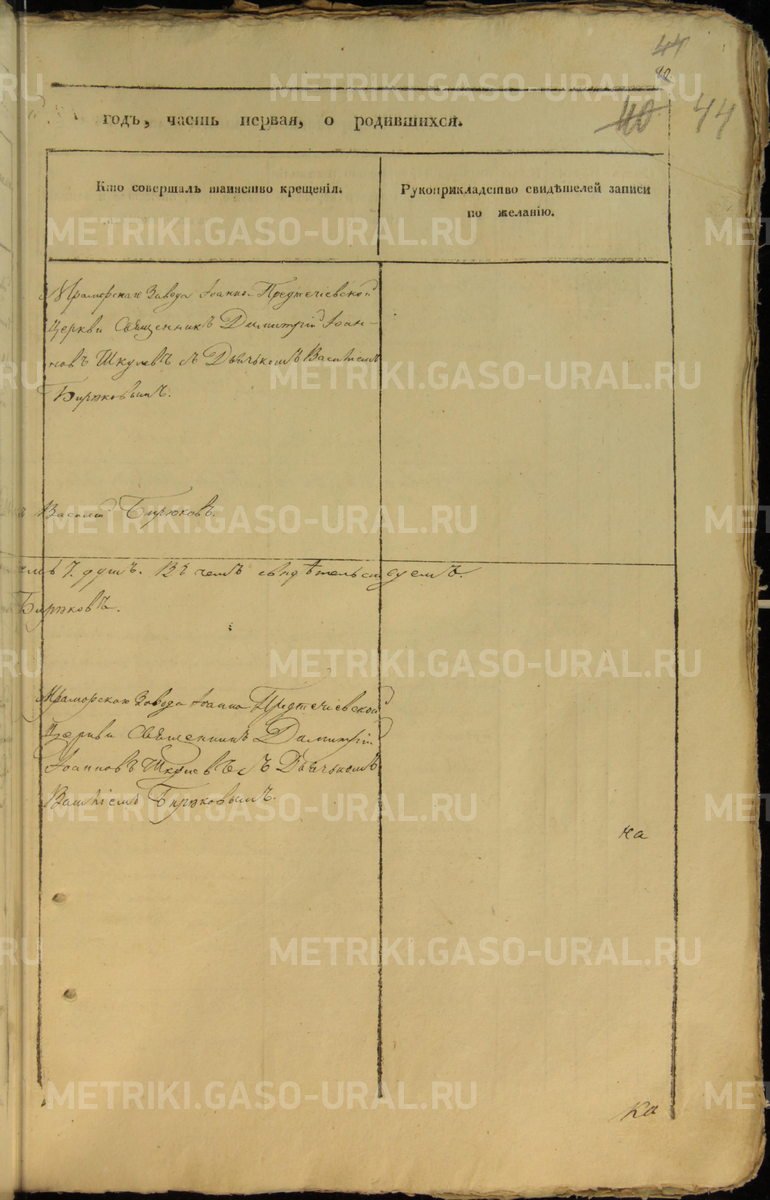 44
40 44
годъ, часть первая, о родившихся.
Кто совершалъ таинство крещенія.
Рукоприкладство свидѣтелей записи
по желанію.
Мраморскаго Завода Іоанно Предтечіевской
Церкви Священникъ Димитрій Іоан-
новъ съ Дьячькомъ Василіемъ
Бирюковымъ.
Василій Бирюковъ.
7. душъ. Въ чемъ свидѣтельствуемъ.
Бирюковъ.
Мраморскаго Завода Іоанно Предтечіевской
Церкви Священникъ Димитрій
Іоанновъ съ Дьячькомъ
Василіемъ Бирюковымъ.
METRIKI.GASO-URAL.RU